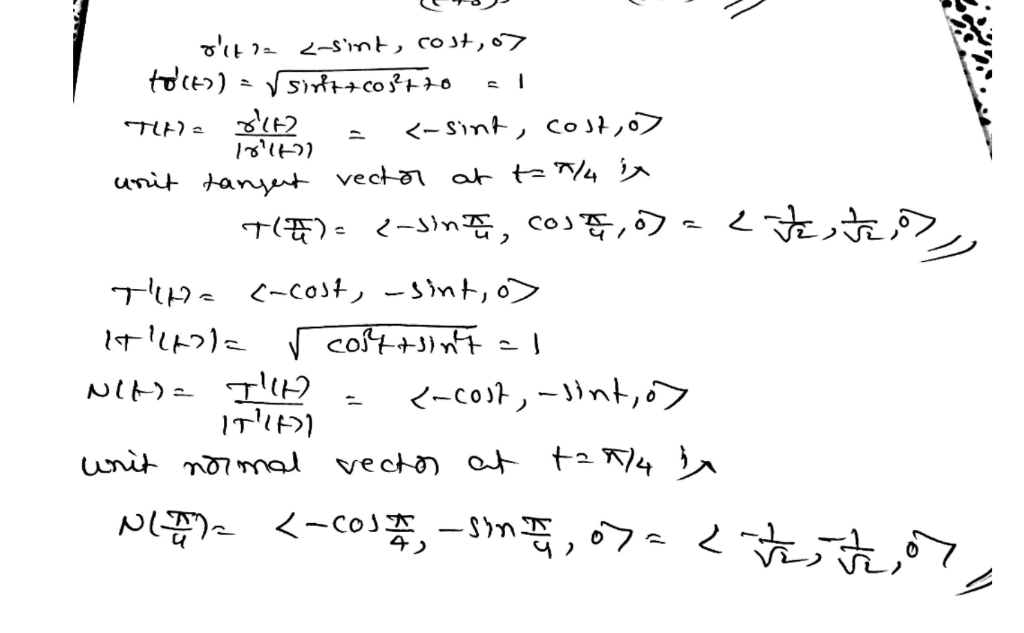 r'(t) = <-sint, cost, 0>
|r'(t)| = √sin²t+cos²t+0 = 1
T(t) = r'(t)/|r'(t)| = <-sint, cost, 0>
unit tangent vector at t=π/4 is
T(π/4) = <-sin π/4, cos π/4, 0> = <-1/√2, 1/√2, 0>
T'(t) = <-cost, -sint, 0>
|T'(t)| = √cos²t+sin²t = 1
N(t) = T'(t)/|T'(t)| = <-cost, -sint, 0>
unit normal vector at t=π/4 is
N(π/4) = <-cos π/4, -sin π/4, 0> = <-1/√2, -1/√2, 0>